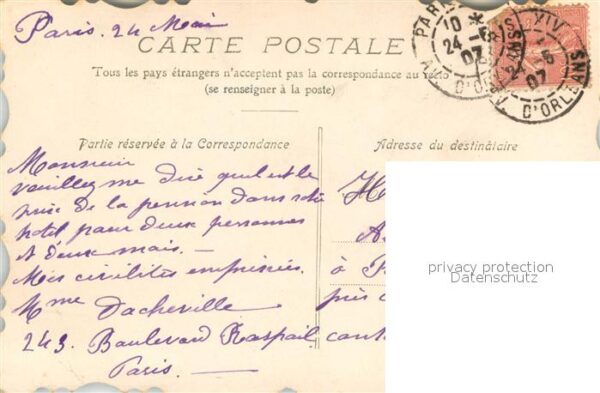 Paris. 24 Mai
CARTE POSTALE
Tous les pays étrangers n'acceptent pas la correspondance au recto
(se renseigner à la poste)
PARIS XIV
10 *
24 -5
07
AV. D'ORLEANS
PARIS XIV
24 -5
07
AV. D'ORLEANS
Partie réservée à la Correspondance
Monsieur
veuillez me dire quel est le
prix de la pension dans votre
hotel pour deux personnes
et deux mois. —
Mes civilités empressées.
Mme Dacheville
243. Boulevard Raspail
Paris. —
Adresse du destinataire
à
près
privacy protection
Datenschutz